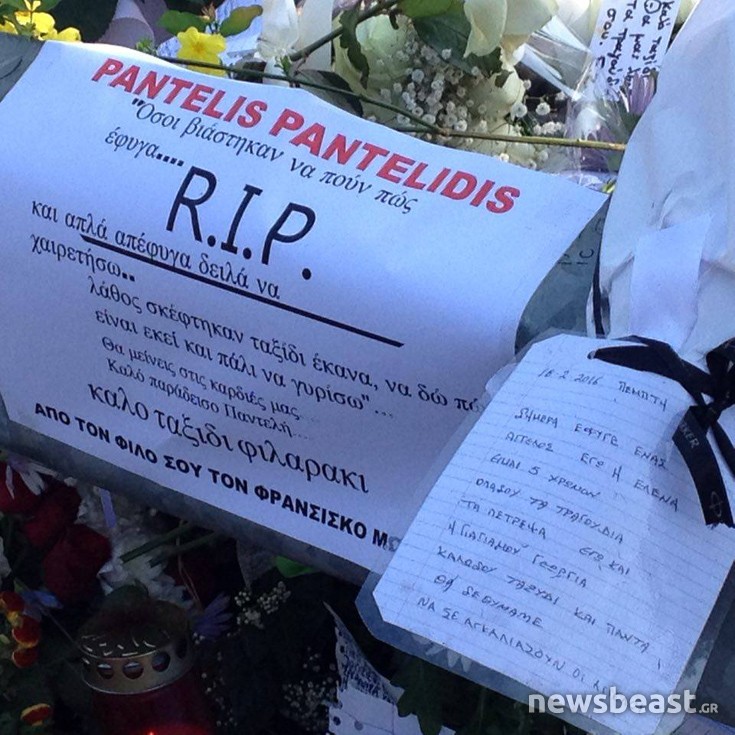 PANTELIS PANTELIDIS
"Όσοι βιάστηκαν να πούν πώς
έφυγα....
R.I.P.
και απλά απέφυγα δειλά να
χαιρετήσω..
λάθος σκέφτηκαν ταξίδι έκανα, να δώ
είναι εκεί και πάλι να γυρίσω"...
Θα μείνεις στις καρδιές μας...
Καλό παράδεισο Παντελή...
καλο ταξιδι φιλαρακι
ΑΠΟ ΤΟΝ ΦΙΛΟ ΣΟΥ ΤΟΝ ΦΡΑΝΣΙΣΚΟ
2016 ΠΕΜΠΤΗ
ΣΗΜΕΡΑ ΕΦΥΓΕ ΕΝΑΣ
ΑΓΓΕΛΟΣ ΕΓΩ Η ΕΛΕΝΑ
ΕΙΜΑΙ 5 ΧΡΟΝΩΝ
ΤΑ ΤΡΑΓΟΥΔΙΑ
ΕΓΩ ΚΑΙ
Η ΓΙΑΓΙΑΜΟΥ ΓΕΩΡΓΙΑ
ΚΑΙ ΠΑΝΤΑ
ΘΑ ΣΕ ΘΥΜΑΜΕ
ΝΑ ΣΕ ΑΓΚΑΛΙΑΖΟΥΝ ΟΙ
newsbeast.GR